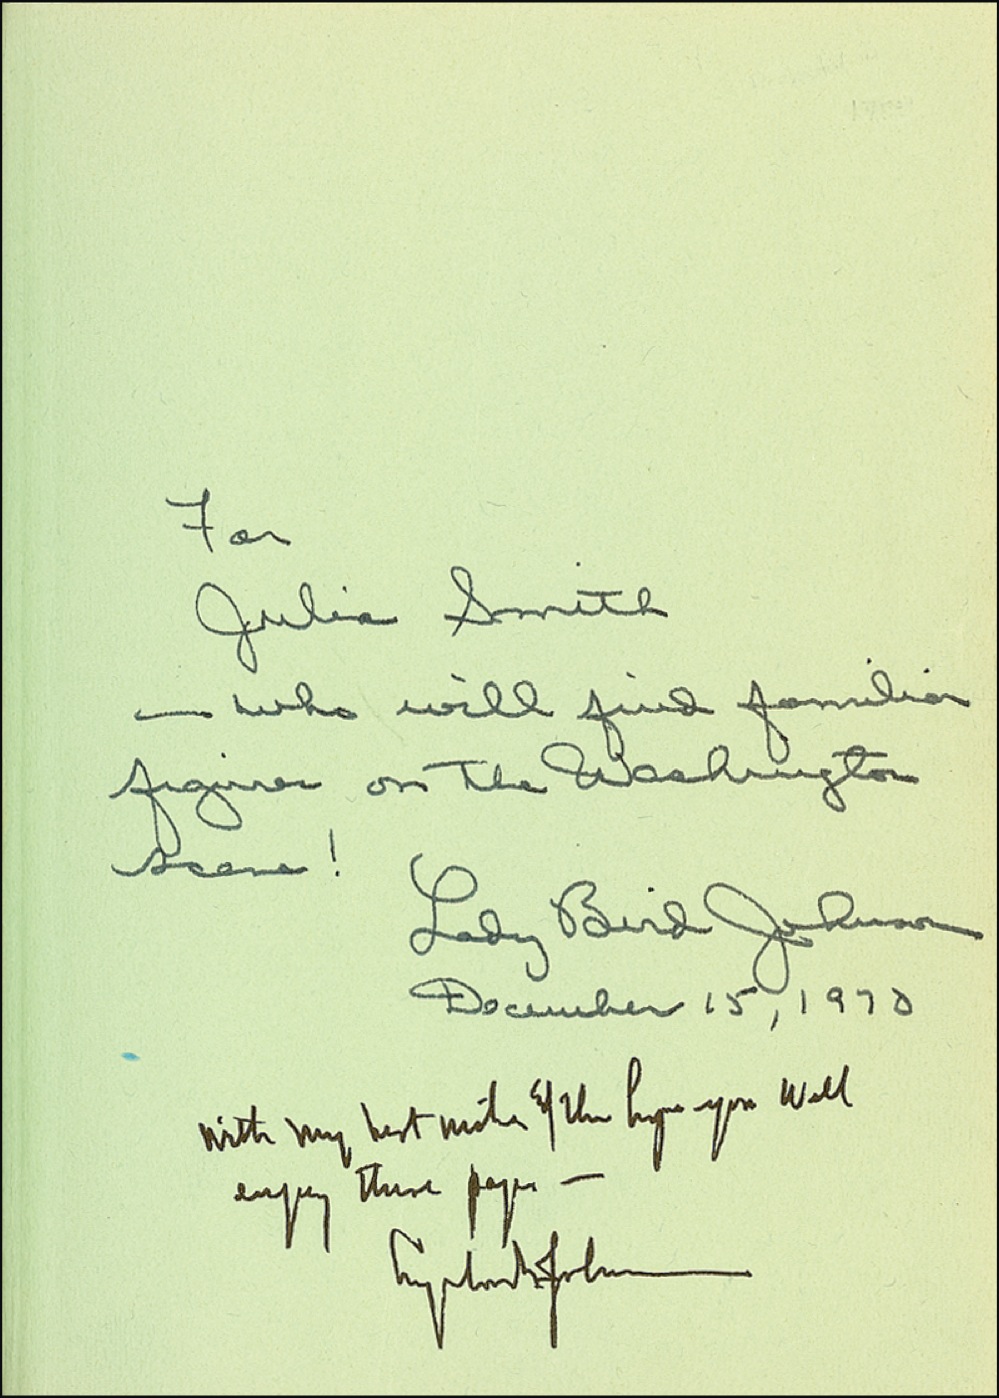 For
Julia Smith
— who will find familiar
figures on the Washington
scene!
Lady Bird Johnson
December 15, 1970
With my best wishes & the hope you will
enjoy these pages —
Lyndon B. Johnson